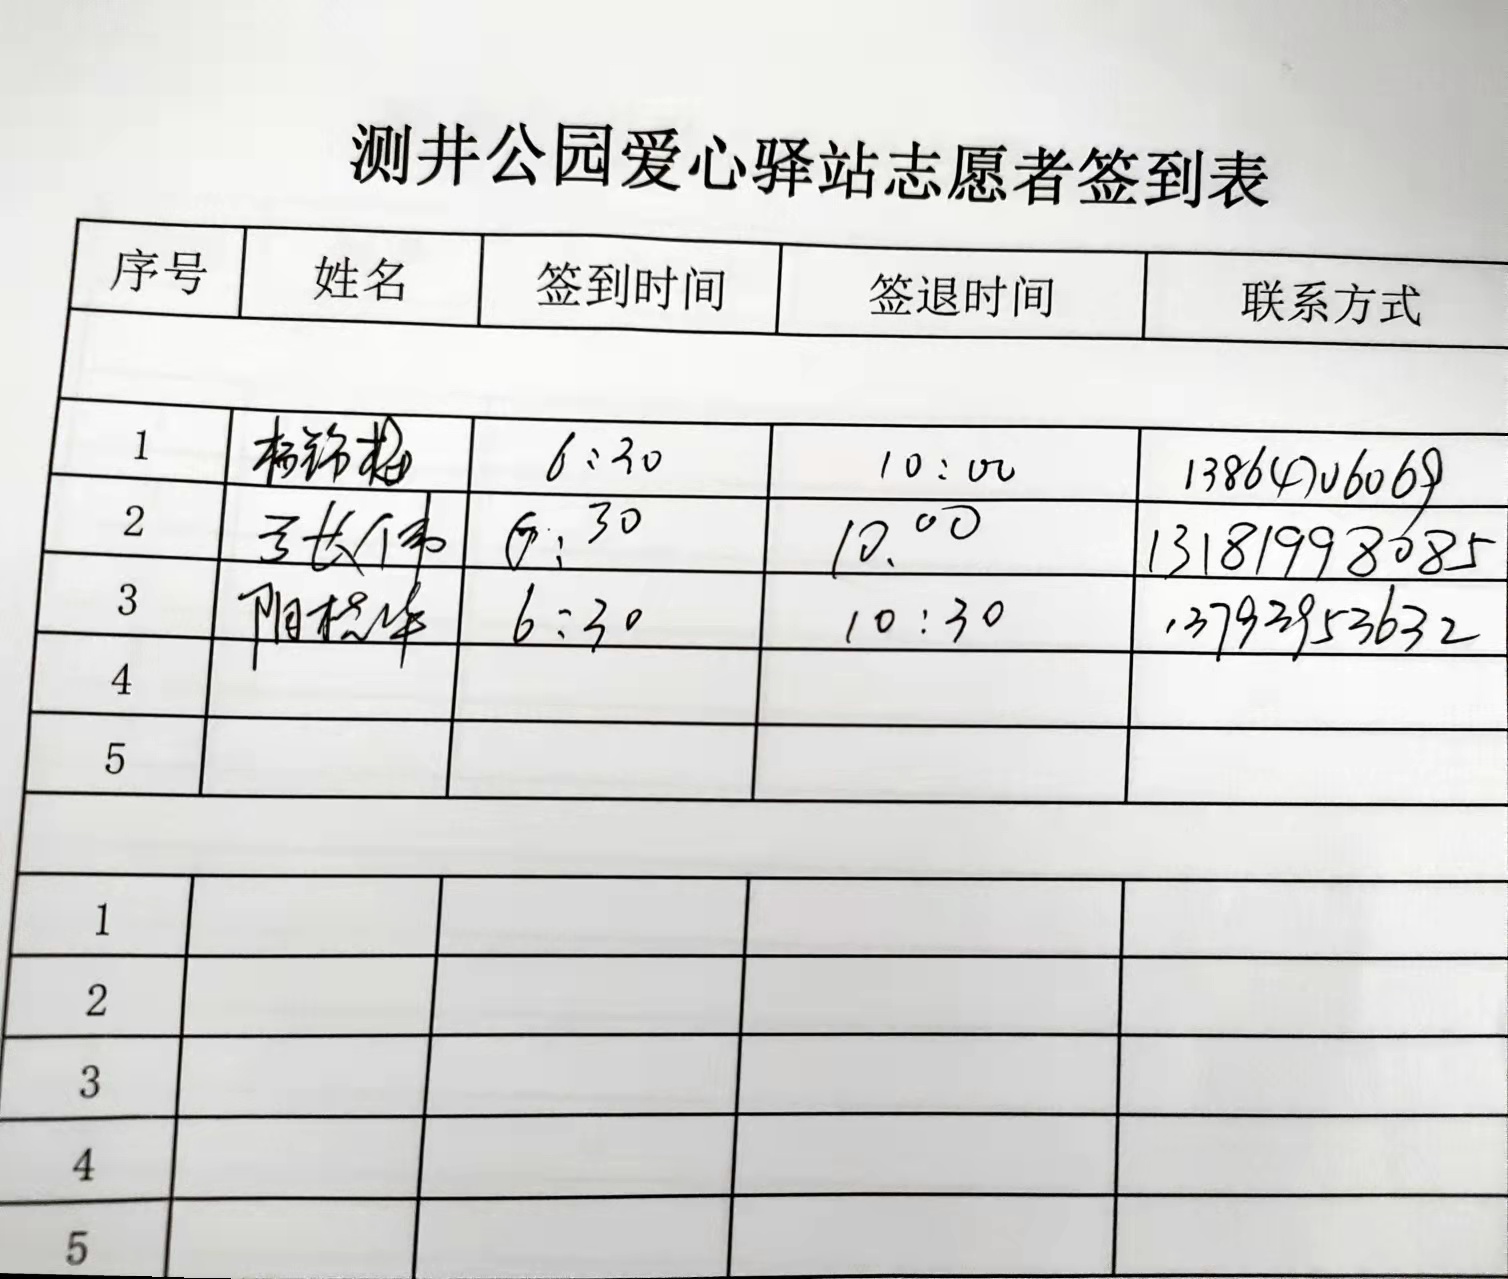 测井公园爱心驿站志愿者签到表
序号 姓名 签到时间 签退时间 联系方式
1 杨锦梅 6:30 10:00 13864706069
2 长伟 6:30 10.00 13181998085
3 阳桂华 6:30 10:30 13793953632
4
5
1
2
3
4
5